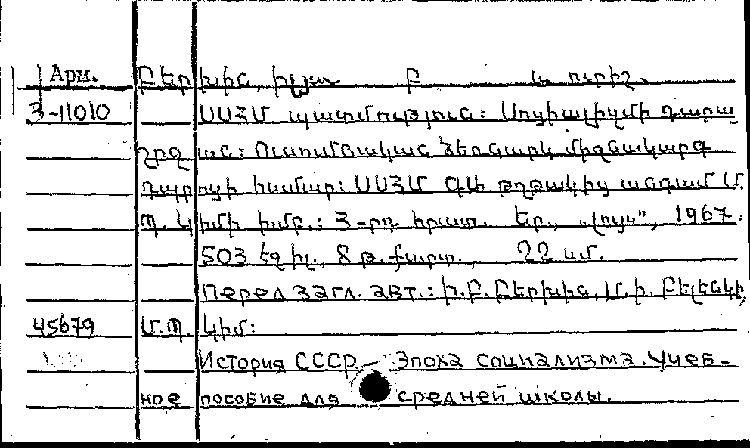 Арм. Բերխին, Իլյա Բ և ուրիշ.
3-11010 ՍՍՀՄ պատմություն: Սոցիալիզմի դարա
շրջ ան: Ուսումնական ձեռնարկ միջնակարգ
դպրոցի համար: ՍՍՀՄ ԳԱ թղթակից անդամ Մ.
Պ. Կիմի խմբ.: 3-րդ հրատ. Եր., „Լույս", 1967.
503 էջ իլ., 8 թ. քարտ., 22 սմ.
Перед загл. авт.: Ի.Բ. Բերխին, Մ.Ի. Բելենկի,
45679 Մ.Պ. Կիմ:
История СССР – Эпоха социализма. Учеб-
ное пособие для средней школы.